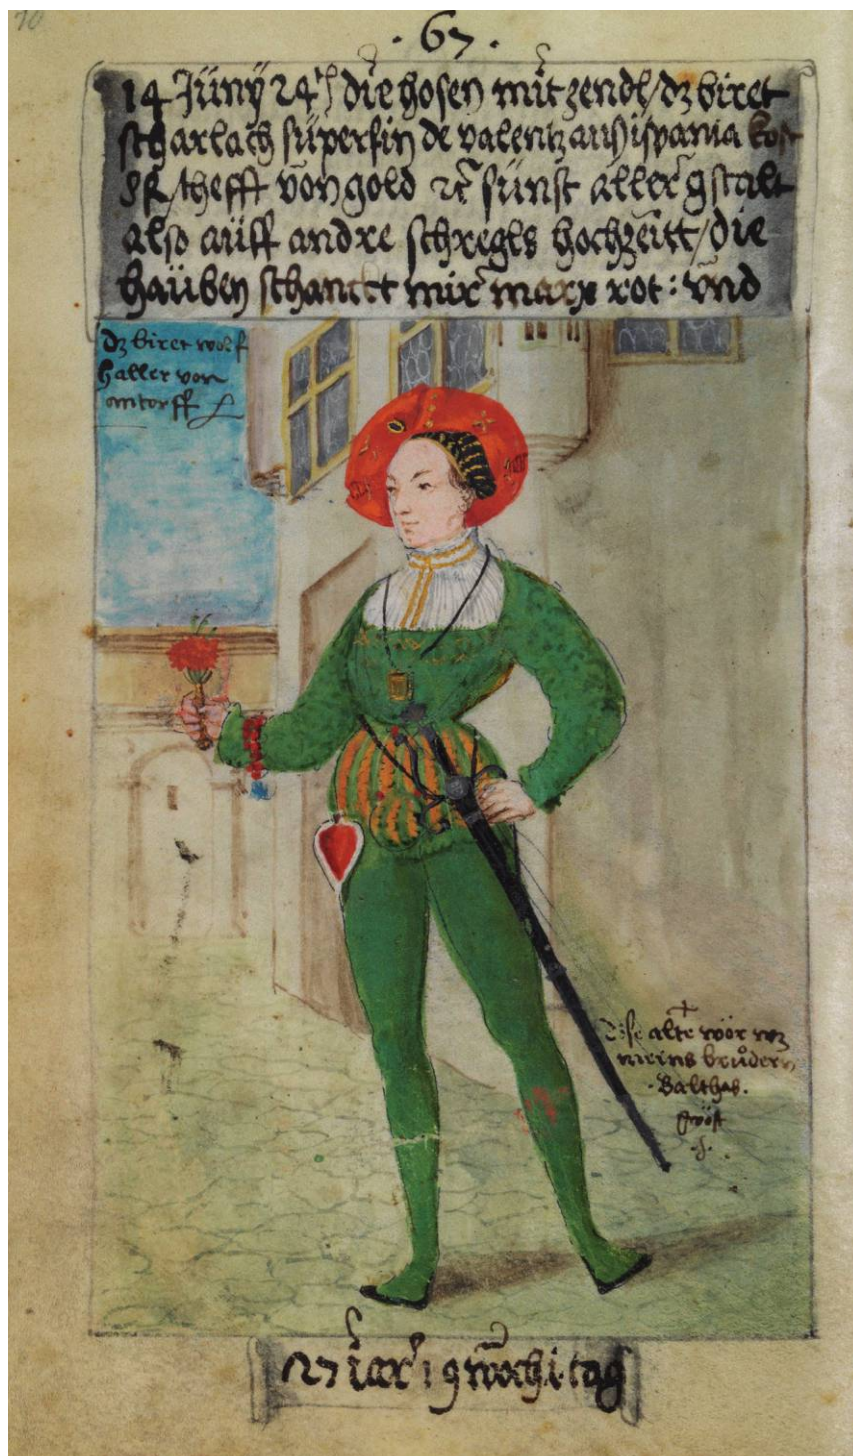 70
· 67 ·
14 Jüny 24 die hosen mit zendl / dz biret
scharlach süperfin de valentz aus ispania kost
8 fl / thefft von gold ꝛc sünst aller gstalt
also aüff andre schregls hochzeitt / die
haüben schanckt mir marx rot : vnd
dz biret wolf
haller von
antorff
alte wör wz
meins brůdern
· Balthas ·
gwöst
27 iar 19 woch 1 tag